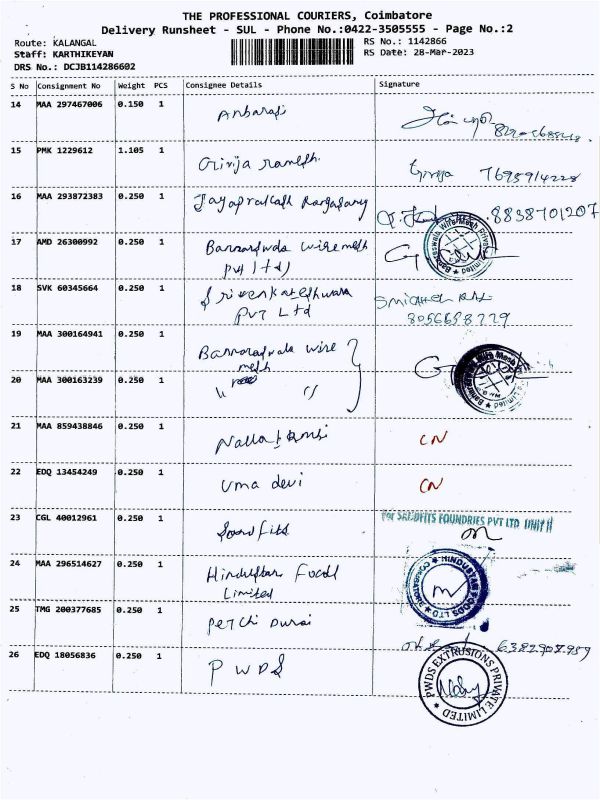 THE PROFESSIONAL COURIERS, Coimbatore
Delivery Runsheet - SUL - Phone No.:0422-3505555 - Page No.:2
Route: KALANGAL
RS No.: 1142866
Staff: KARTHIKEYAN
RS Date: 28-Mar-2023
DRS No.: DCJB114286602
S No Consignment No Weight PCS Consignee Details Signature
14 MAA 297467006 0.150 1 Anbarasi
15 PMK 1229612 1.105 1 Girija ramesh. Girija 7695914228
16 MAA 293872383 0.250 1 Jayaprakash Rangasamy 8838701207
17 AMD 26300992 0.250 1 Banaraswala wiremesh
Pvt ltd)
18 SVK 60345664 0.250 1 Srivenkateshwara
Pvt Ltd
8056658229
19 MAA 300164941 0.250 1 Banaraswala wire
mesh
20 MAA 300163239 0.250 1 " "
21 MAA 859438846 0.250 1 Nallathambi CN
22 EDQ 13454249 0.250 1 Uma devi CN
23 CGL 40012961 0.250 1 Soundfits For SANDFITS FOUNDRIES PVT LTD UNIT II
24 MAA 296514627 0.250 1 Hindustan Foods
Limited
HINDUSTAN FOODS LTD COIMBATORE
25 TMG 200377685 0.250 1 Petchi Durai
26 EDQ 18056836 0.250 1 PWDS
PWDS EXTRUSIONS PRIVATE LIMITED